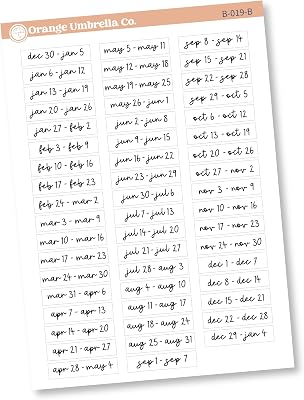 Orange Umbrella Co.
B-019-B
dec 30 - jan 5
jan 6 - jan 12
jan 13 - jan 19
jan 20 - jan 26
jan 27 - feb 2
feb 3 - feb 9
feb 10 - feb 16
feb 17 - feb 23
feb 24 - mar 2
mar 3 - mar 9
mar 10 - mar 16
mar 17 - mar 23
mar 24 - mar 30
mar 31 - apr 6
apr 7 - apr 13
apr 14 - apr 20
apr 21 - apr 27
apr 28 - may 4
may 5 - may 11
may 12 - may 18
may 19 - may 25
may 26 - jun 1
jun 2 - jun 8
jun 9 - jun 15
jun 16 - jun 22
jun 23 - jun 29
jun 30 - jul 6
jul 7 - jul 13
jul 14 - jul 20
jul 21 - jul 27
jul 28 - aug 3
aug 4 - aug 10
aug 11 - aug 17
aug 18 - aug 24
aug 25 - aug 31
sep 1 - sep 7
sep 8 - sep 14
sep 15 - sep 21
sep 22 - sep 28
sep 29 - oct 5
oct 6 - oct 12
oct 13 - oct 19
oct 20 - oct 26
oct 27 - nov 2
nov 3 - nov 9
nov 10 - nov 16
nov 17 - nov 23
nov 24 - nov 30
dec 1 - dec 7
dec 8 - dec 14
dec 15 - dec 21
dec 22 - dec 28
dec 29 - jan 4